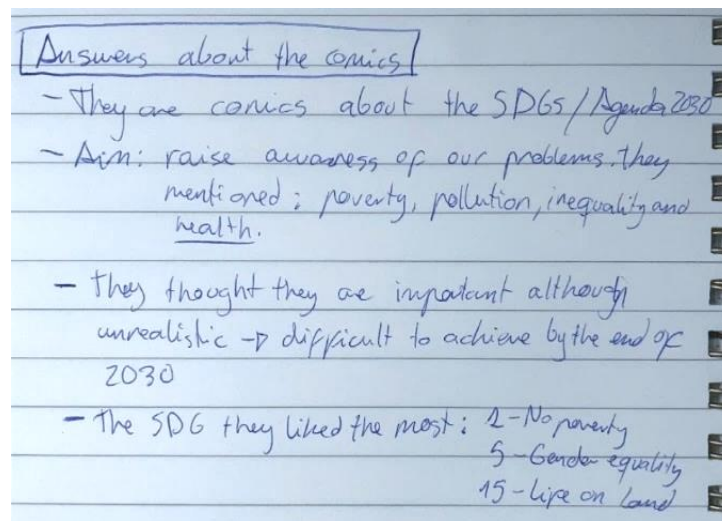 Answers about the comics
- They are comics about the SDGs/Agenda 2030
- Aim: raise awareness of our problems. they
mentioned: poverty, pollution, inequality and
health.
- They thought they are important although
unrealistic → difficult to achieve by the end of
2030
- The SDG they liked the most: 1-No poverty
5-Gender equality
15-Life on Land